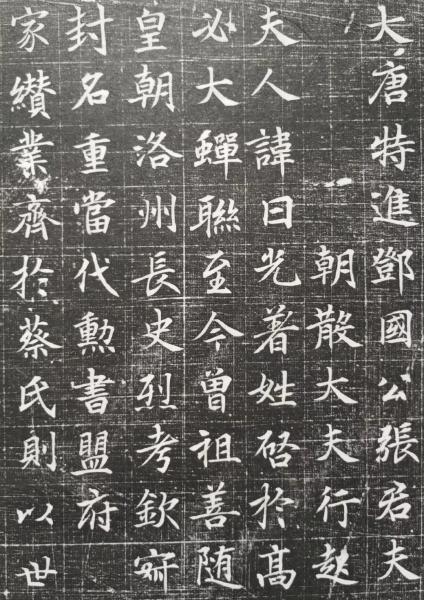 大唐特進鄧國公張君夫
朝散大夫行
夫人諱日光著姓启於高
必大蟬聯至今曾祖善随
皇朝洛州長史烈考欽
封名重當代勲書盟府
家纘業齊於蔡氏則以世